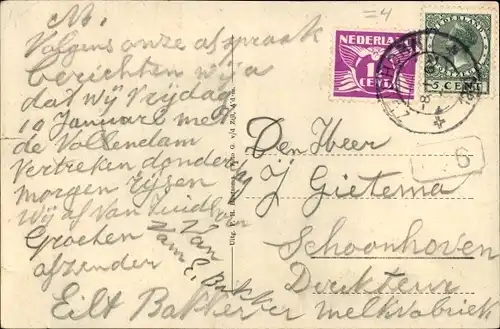 M.
Volgens onze afspraak
berichten wij u
dat wij Vrijdag
10 Januari met
de Vollendam
vertrekken donderdag
morgen
wij af van
Groeten van
afzender Fam E. Bakker
Eilt Bakker
=4
NEDERLAND
CENT
NEDERLAND
5 CENT
6
Den Heer
J Gietema
Schoonhoven
Direkteur
melkfabriek